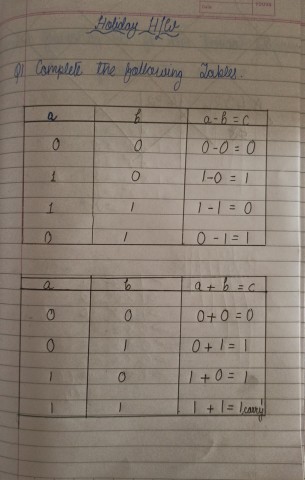 Holiday H/W
Q1 Complete the following Tables.
a b a-b=c
0 0 0-0=0
1 0 1-0=1
1 1 1-1=0
0 1 0-1=1
a b a+b=c
0 0 0+0=0
0 1 0+1=1
1 0 1+0=1
1 1 1+1=1carry